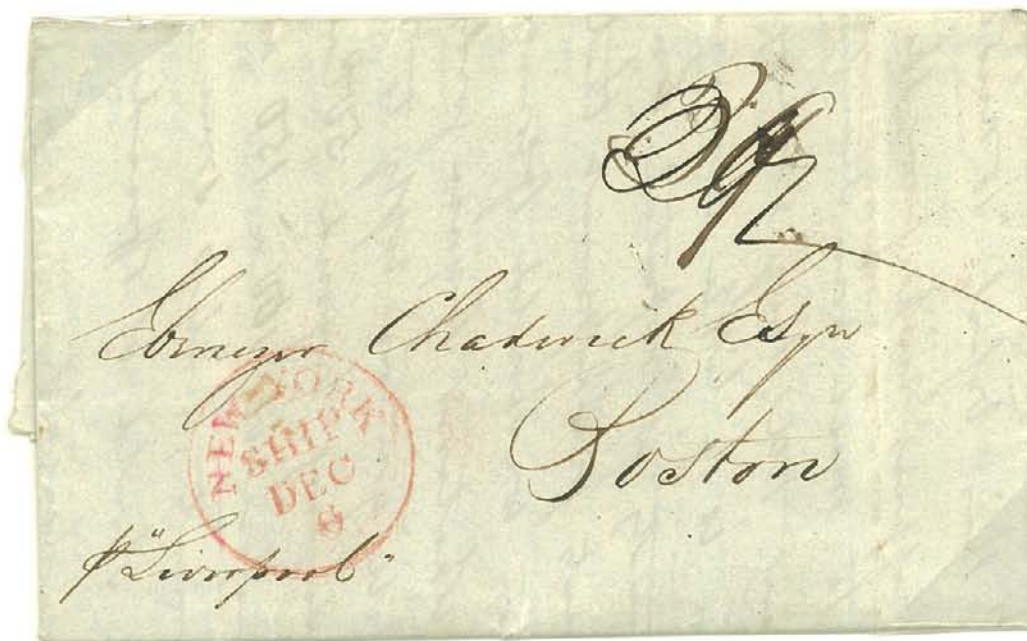 Ebenezer Chadwick Esqr
Boston
NEW-YORK
SHIP
DEC
6
p "Liverpool"